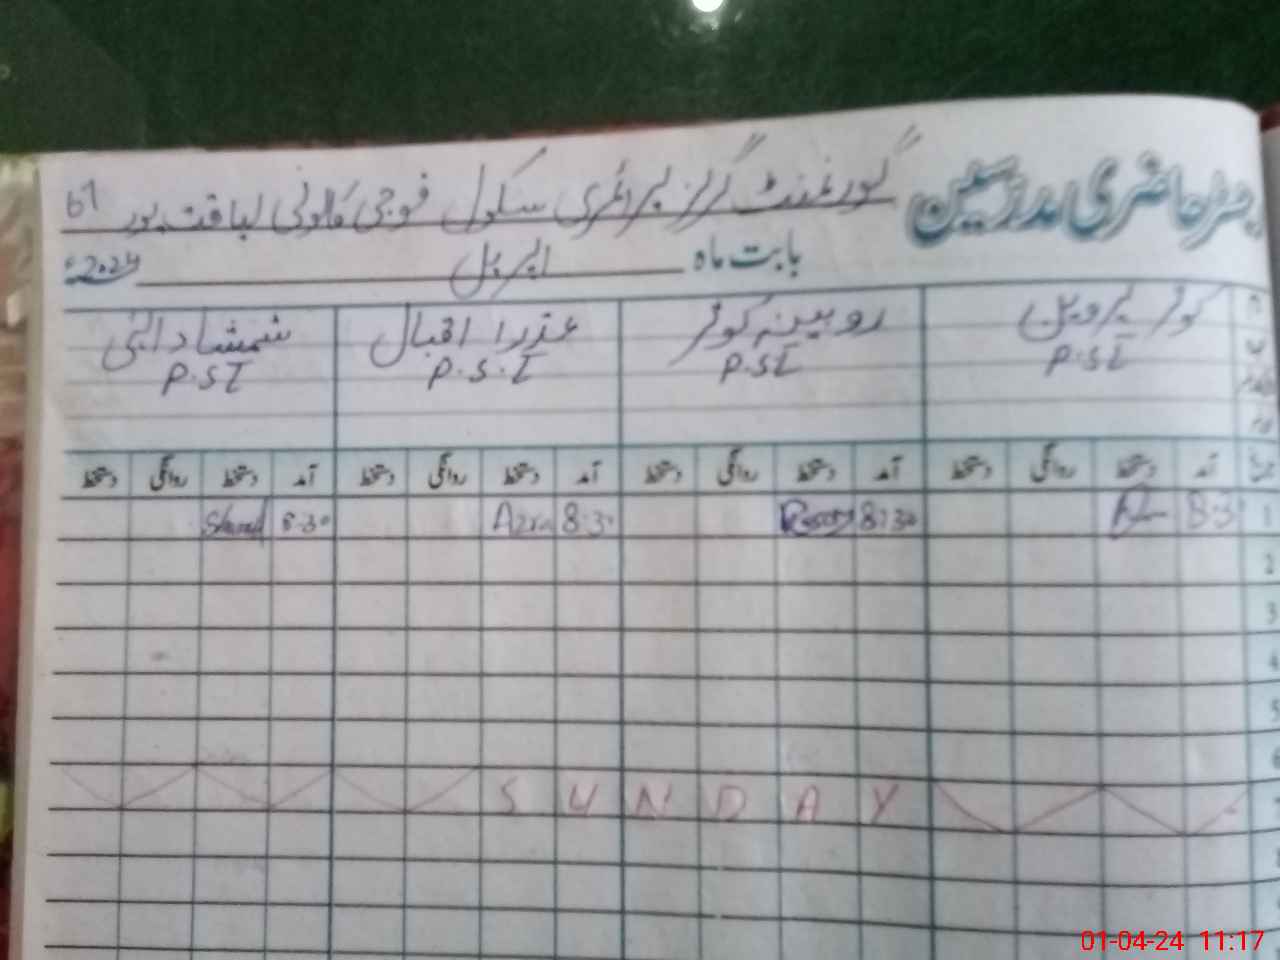 رجسٹر حاضری مدرسین گورنمنٹ گرلز پرائمری سکول فوجی کالونی لیاقت پور 61
بابت ماہ اپریل 2024ء
کوثر پروین روبینہ کوثر عذرا اقبال شمشاد
P.S.T P.S.T P.S.T P.S.T
آمد دستخط روانگی دستخط آمد دستخط روانگی دستخط آمد دستخط روانگی دستخط آمد دستخط روانگی دستخط
1 8:3 8:30 8:30 Azra 8:30
2
3
4
5
6
SUNDAY
01-04-24 11:17